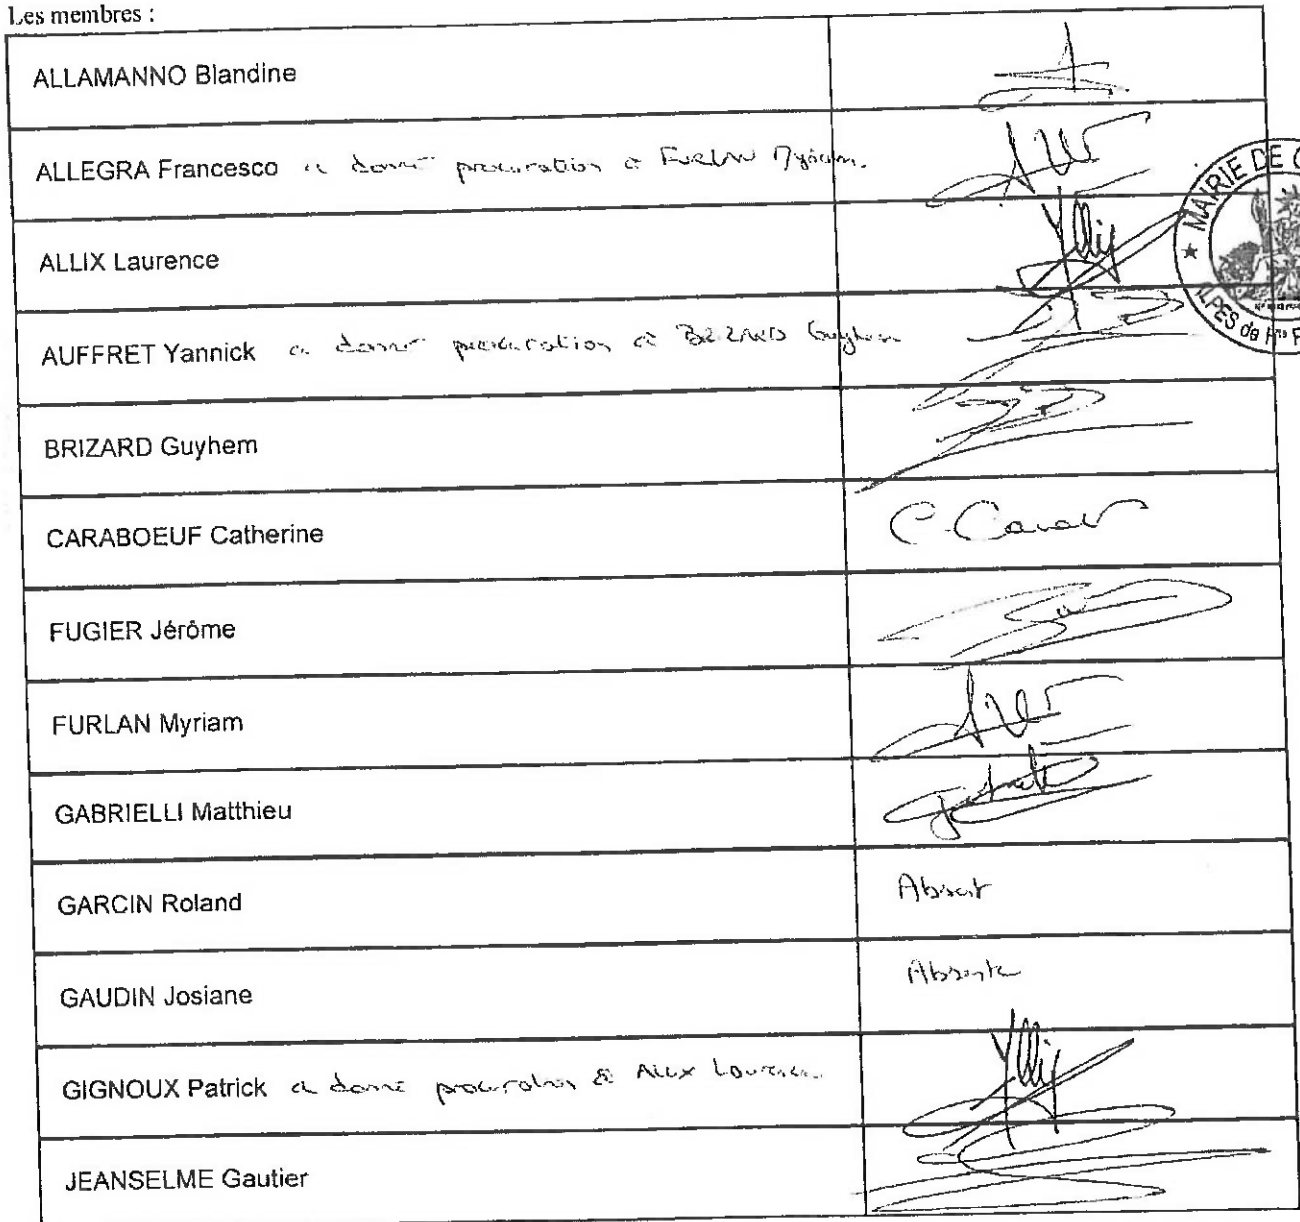 Les membres :
ALLAMANNO Blandine
ALLEGRA Francesco a donné procuration à FURLAN Myriam.
ALLIX Laurence
AUFFRET Yannick a donné procuration à BRIZARD Guyhem
BRIZARD Guyhem
CARABOEUF Catherine
C. Carab
FUGIER Jérôme
FURLAN Myriam
GABRIELLI Matthieu
GARCIN Roland
Absent
GAUDIN Josiane
Absente
GIGNOUX Patrick a donné procuration à ALLIX Laurence
JEANSELME Gautier
MAIRIE DE